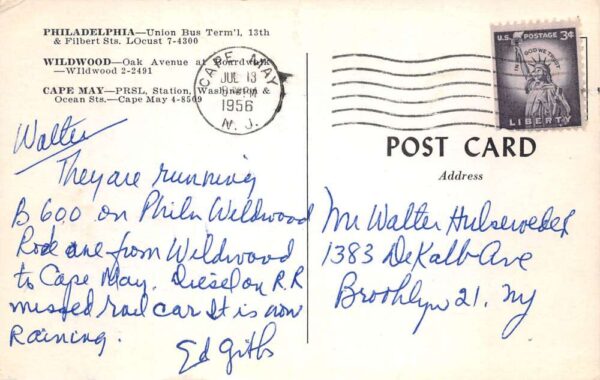 PHILADELPHIA—Union Bus Term'l, 13th
& Filbert Sts. LOcust 7-4300
WILDWOOD—Oak Avenue at Boardwalk
—WIldwood 2-2491
CAPE MAY—PRSL, Station, Washington &
Ocean Sts.—Cape May 4-8509
CAPE MAY
JUL 13
1956
N. J.
U.S. POSTAGE 3¢
IN GOD WE TRUST
LIBERTY
POST CARD
Address
Walter
They are running
B 600 on Phila Wildwood
and one from Wildwood
to Cape May. Diesel on R.R
missed rail car It is now
Raining.
Ed Gibbs
Mr Walter
1383 DeKalb Ave
Brooklyn 21. Ny